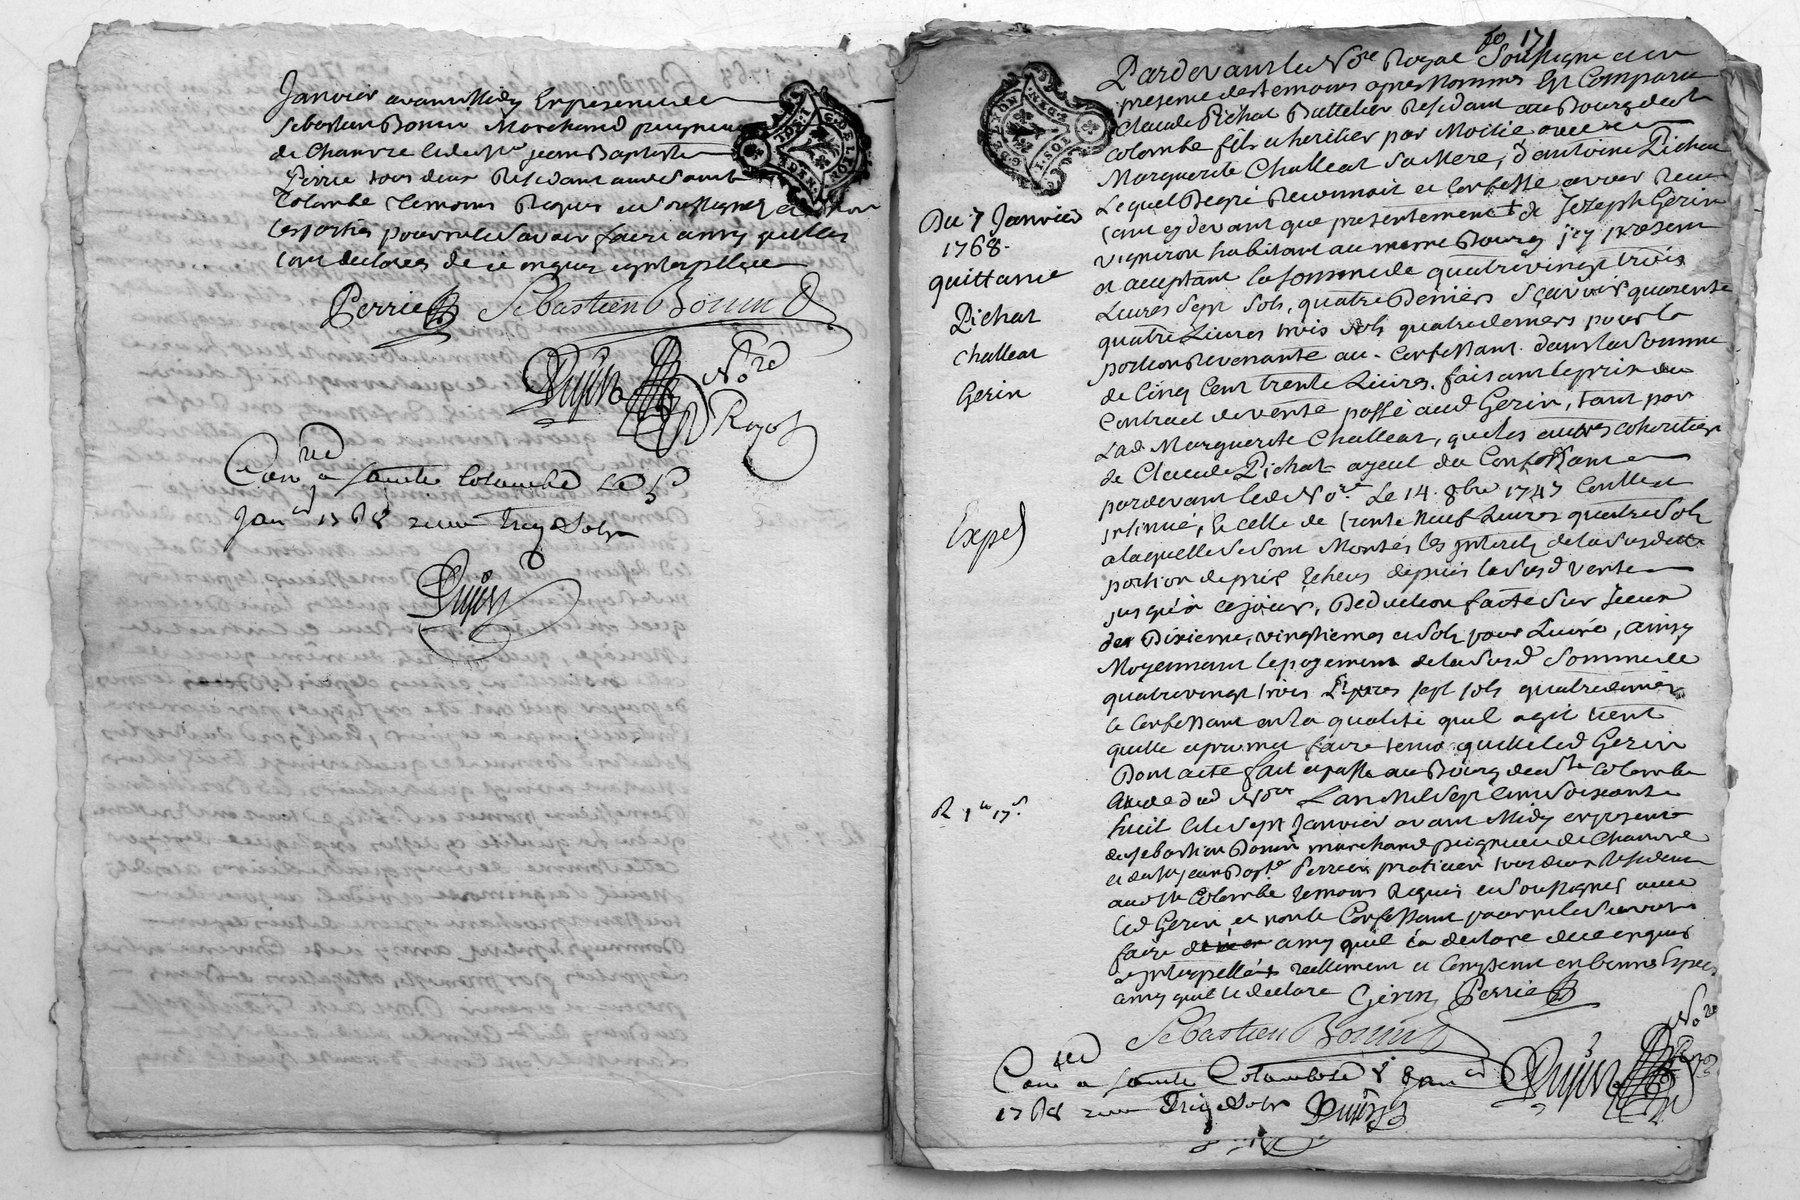 Janvier avant Midy En presence de
Sebastien Bonin Marchand peigneur
de Chanvre et de Sr Jean Baptiste
Perrie tous deux Residant aud. Saint
Colombe temoins Requis et Soussignez et non
les parties pour ne le Scavoir faire ainsy quelles
lont declarées de ce enquis et interpellées
Perrie Sebastien Bonin
Dujon Nore
Royal
Conred a sainte Colombe Le 5
Janer 1768 recu treize Sols
Dujon
fo 171
Pardevant le Nore Royal Soussigné et en
presence des temoins apres Nommés Est Comparu
Claude Pichat Battelier Residant au Bourg de Ste
Colombe fils et heritier par Moitié avec
Marguerite Challeat Sa Mere, d'antoine Pichat
Lequel Degré Reconnait et Confesse avoir Recu
tant cy devant que presentement de Jozeph Gerin
vigneron habitant au meme Bourg icy present
et acceptant la somme de quatre vingt trois
Livres Sept Sols, quatre Deniers Sçavoir quarente
quatre Livres trois sols quatre deniers pour la
portion Revenante au Confessant dans la Somme
de Cinq Cent trente Livres, faisant le prix du
Contract de vente passé aud Gerin, tant par
Lad Marguerite Challeat, que les autres coheritiers
de Claude Pichat ayeul du Confessant
pardevant led Nore Le 14 8bre 1747 Conllee
insinué, & celle de trente Neuf Livres quatre Sols
a laquelle Se Sont Montés les interets de la Susditte
portion de prix Echeus depuis la Susd vente
jusqu'à ce jour, Deduction faite Sur iceux
des Dixieme, vingtiemes et Sols pour Livre, ainsy
Moyennant le payement de la Susd Somme de
quatre vingt trois Livres sept sols quatre deniers
le Confessant en la qualité quil agit tient
quitte et promet faire tenir quitte led Gerin
Dont acte fait et passé au Bourg de Ste Colombe
Etude dud Nore L'an Mil Sept Cent Soixante
huit & le Sept Janvier avant Midy en presence
de Sebastien Bonin marchand peigneur de Chanvre
et de Sr Jean Bapte Perrie praticien tous deux Residens
aud Ste Colombe temoins Requis et Soussignes avec
led Gerin et non le Confessant pour ne le Scavoir
faire ainsy quil la declare de ce enquis
et interpellé reellement et Comptant en bonnes Especes
ainsy quil le declare Gerin Perrie
Sebastien Bonin
Dujon Nore
Conred a sainte Colombe le 8 Janer
1768 recu treize Sols Dujon
Du 7 Janvier
1768.
quittance
Pichat
Challeat
Gerin
Exped
R 1tt 17s